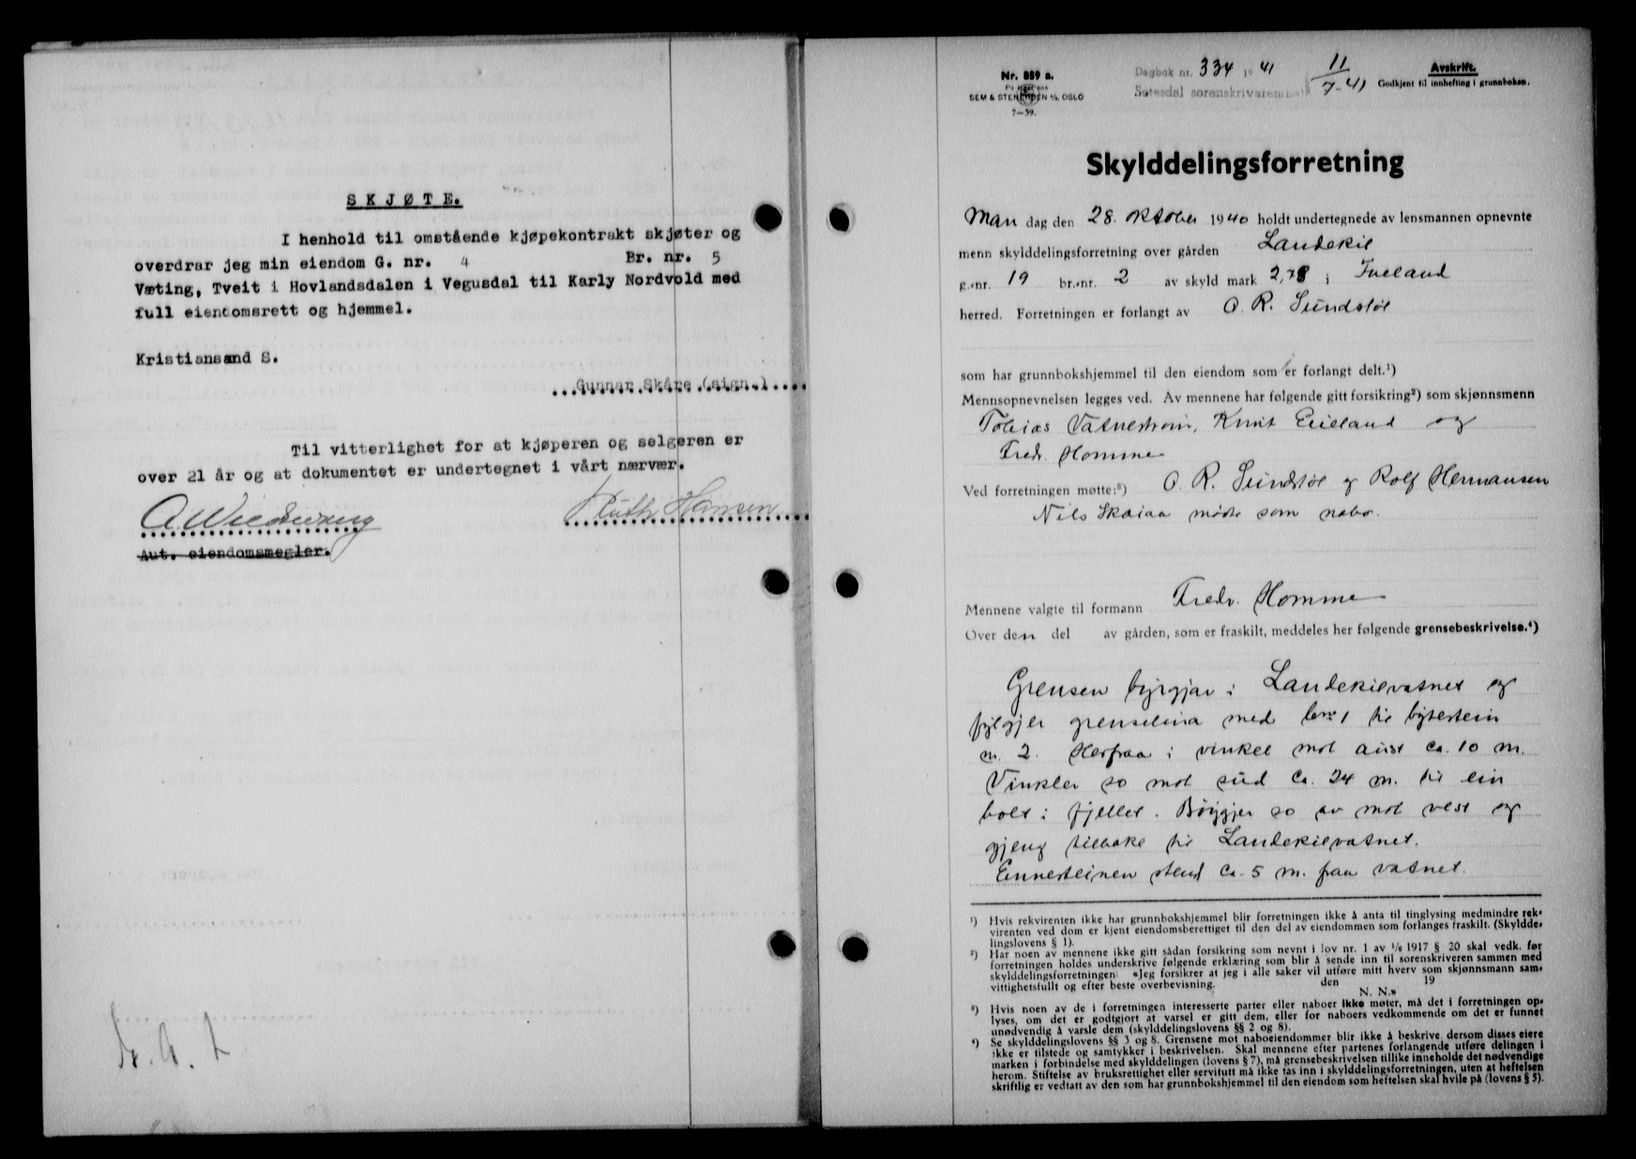 SKJØTE.
I henhold til omstående kjøpekontrakt skjøter og
overdrar jeg min eiendom G. nr. 4 Br. nr. 5
Væting, Tveit i Hovlandsdalen i Vegusdal til Karly Nordvold med
full eiendomsrett og hjemmel.
Kristiansand S.
Gunnar Skåre (sign.)
Til vitterlighet for at kjøperen og selgeren er
over 21 år og at dokumentet er undertegnet i vårt nærvær.
Ruth Hansen
Aut. eiendomsmegler.
Nr. 889 a.
På lager hos
SEM & STENERSEN A/S, OSLO
7—39.
Dagbok nr. 334 19 41
Setesdal sorenskrivarembete
11/7-41
Avskrift.
Godkjent til innhefting i grunnboken.
Skylddelingsforretning
Man dag den 28. oktober 1940 holdt undertegnede av lensmannen opnevnte
menn skylddelingsforretning over gården Landekil
g.-nr. 19 br.-nr. 2 av skyld mark 2,78 i Iveland
herred. Forretningen er forlangt av O. R. Sundstøl
som har grunnbokshjemmel til den eiendom som er forlangt delt.¹)
Mennsopnevnelsen legges ved. Av mennene har følgende gitt forsikring²) som skjønnsmenn
Tobias Vatnestrøm, Knut Eieland og
Fredr. Homme
Ved forretningen møtte:³) O. R. Sundstøl og Rolf Hermansen
Nils Skaiaa møtte som nabo.
Mennene valgte til formann Fredr. Homme
Over den del av gården, som er fraskilt, meddeles her følgende grensebeskrivelse.⁴)
Grensen byrgjar i Landekilvatnet og
fylgjer grenselina med br.nr 1 til bytestein
n. 2. Herfraa i vinkel mot aust ca. 10 m.
Vinkler so mot sud ca. 24 m. til ein
bolt i fjellet. Bøygjer so av mot vest og
gjeng tilbake til Landekilvatnet.
Ennesteinen stend ca. 5 m. fraa vatnet.
¹) Hvis rekvirenten ikke har grunnbokshjemmel blir forretningen ikke å anta til tinglysing medmindre rek-
virenten ved dom er kjent eiendomsberettiget til den del av eiendommen som forlanges fraskilt. (Skyldde-
lingslovens § 1).
²) Har noen av mennene ikke gitt sådan forsikring som nevnt i lov nr. 1 av 1/6 1917 § 20 skal vedk. før
forretningen holdes underskrive følgende erklæring som blir å sende inn til sorenskriveren sammen med
skylddelingsforretningen: «Jeg forsikrer at jeg i alle saker vil utføre mitt hverv som skjønnsmann sam-
vittighetsfullt og efter beste overbevisning. den 19
N. N.»
³) Hvis noen av de i forretningen interesserte parter eller naboer ikke møter, må det i forretningen op-
lyses, om det er godtgjort at varsel er gitt dem, eller for naboers vedkommende om det er funnet
unødvendig å varsle dem (skylddelingslovens §§ 2 og 8).
⁴) Se skylddelingslovens §§ 3 og 8. Grensene mot naboeiendommer blir ikke å beskrive dersom disses eiere
ikke er tilstede og samtykker i beskrivelsen. Skal mennene efter partenes forlangende utføre delingen i
marken i forbindelse med skylddelingen (lovens § 7), må grensebeskrivelsen tillike inneholde det nødvendige
herom. Stiftelse av bruksrettighet eller servitutt må ikke tas inn i skylddelingsforretningen, uten at heftelsen
skriftlig er vedtatt av den som har grunnbokshjemmel til den eiendom som heftelsen skal hvile på (lovens § 5).